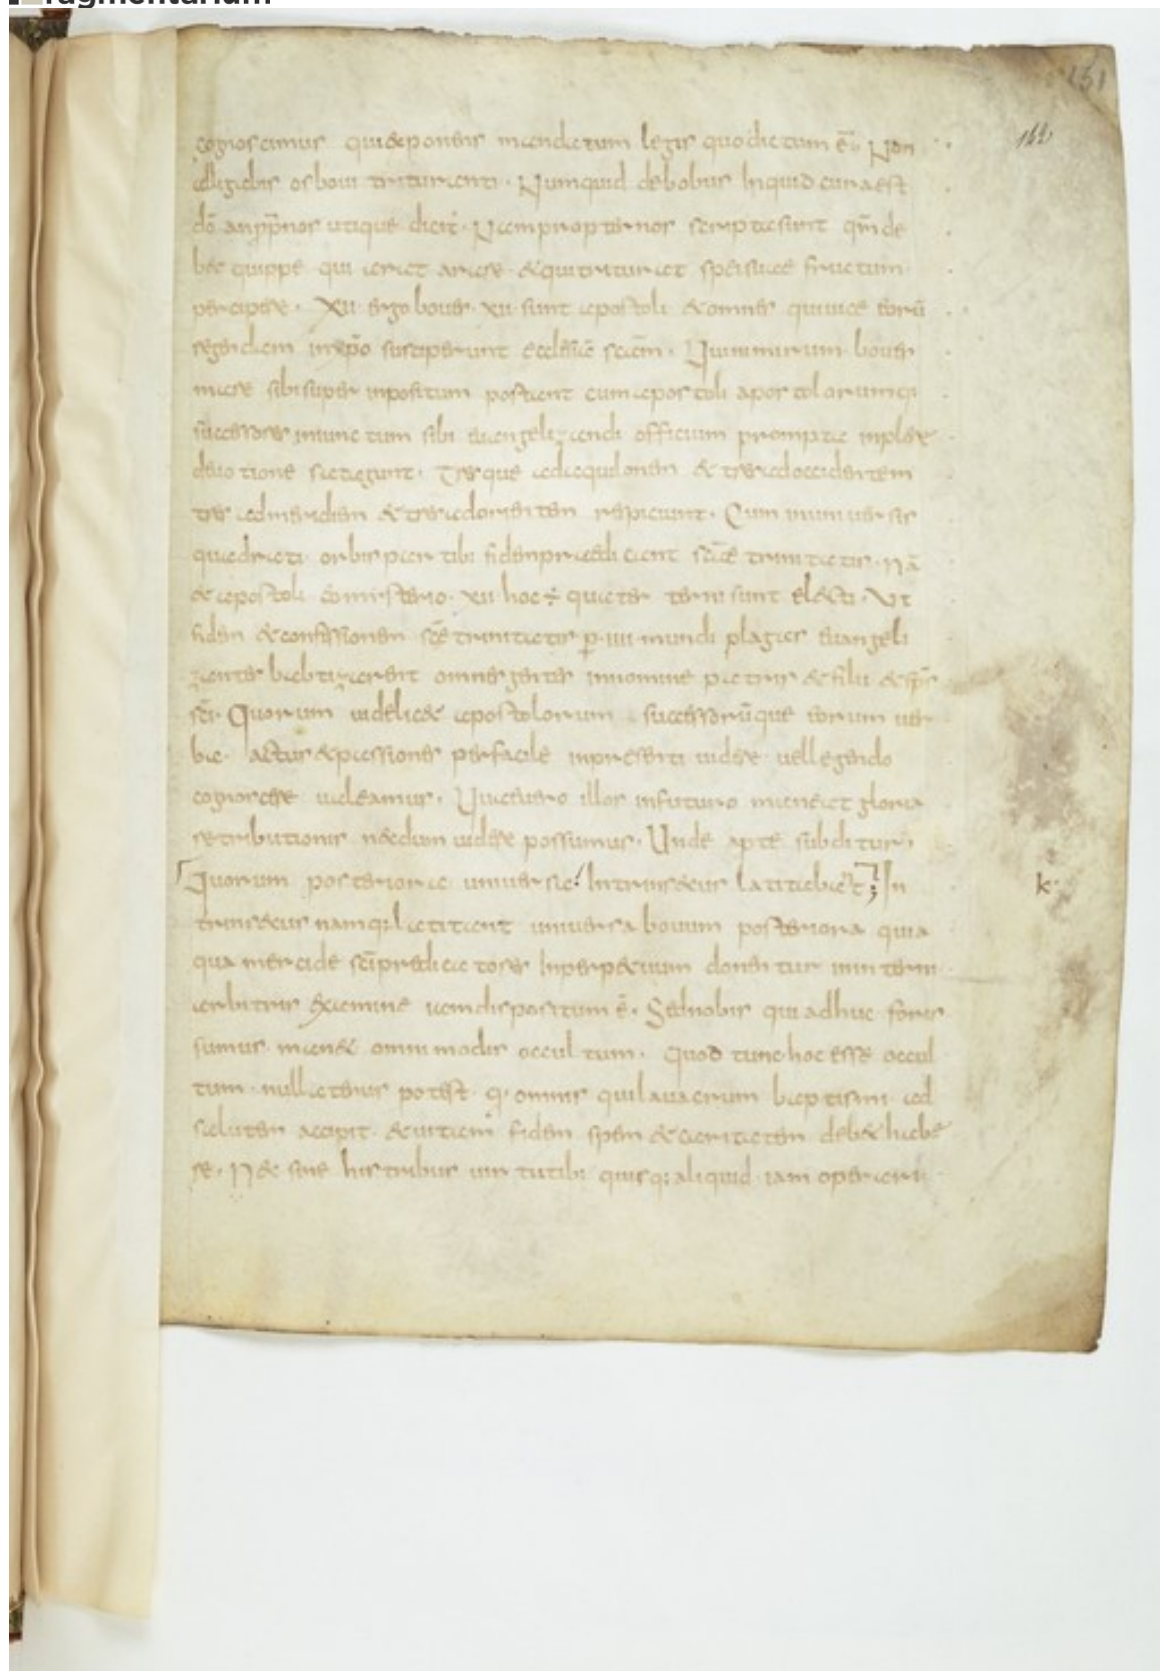 ragmentarium
151
142
cognoscimus qui exponens mandatum legis quo dictum ē Non
alligabis os boui trituranti · Numquid de bobus Inquid cura est
dō an pp̄ nos utique dicit · Nam propter nos scripta sunt qm̄ de
bet quippe qui arat arare · & qui triturat spei suae fructum
percipere · XII · ergo boues · XII · sunt apostoli & omnes qui uice eorū
regendam in xp̄o susceperunt ecclesiae scām · Qui nimirum boues
mare sibi super inpositum postant cum apostoli apostolorumq;
successores iniunctum sibi euangelizandi officium prompta inplere
deuotione satagunt · Tresque ad aquilonem & tres ad occidentem
tres ad meridiem & tres ad orientem respiciunt · Cum in uniuersis
quadrati orbis partibus fidem praedicant scāe trinitatis · Nā
& apostoli eo misterio · XII · hoc ÷ quater terni sunt electi · Vt
fidem & confessionem scē trinitatis p · IIII · mundi plagas euangeli
zantes babtizarent omnes gentes in nomine patris & filii & sp̄s
scī · Quorum uidelic& apostolorum · successorūque eorum uer
ba · actus & passiones perfacile inpresenti uidere uel legendo
cognoscere ualeamus · Quae uero illos in futuro maneat gloria
retributionis necdum uidere possumus · Unde apte subditur ·
Quorum posteriora uniuersa Intrinsecus latitabant; In
trinsecus namq; latitant uniuersa bouum posteriora quia
qua mercede scī predicatores Inperpetuum donentur in interni
arbitris examine iam dispositum ē · Sed nobis qui adhuc foris
sumus man& omnimodis occultum · Quod tunc hoc esse occul
tum · nullatenus potest · q; omnis qui lauacrum baptismi ad
salutem accipit · & uitam fidem spem & caritatem deb& habe
re · N& sine his tribus uirtutib; quisq; aliquid iam operari
k